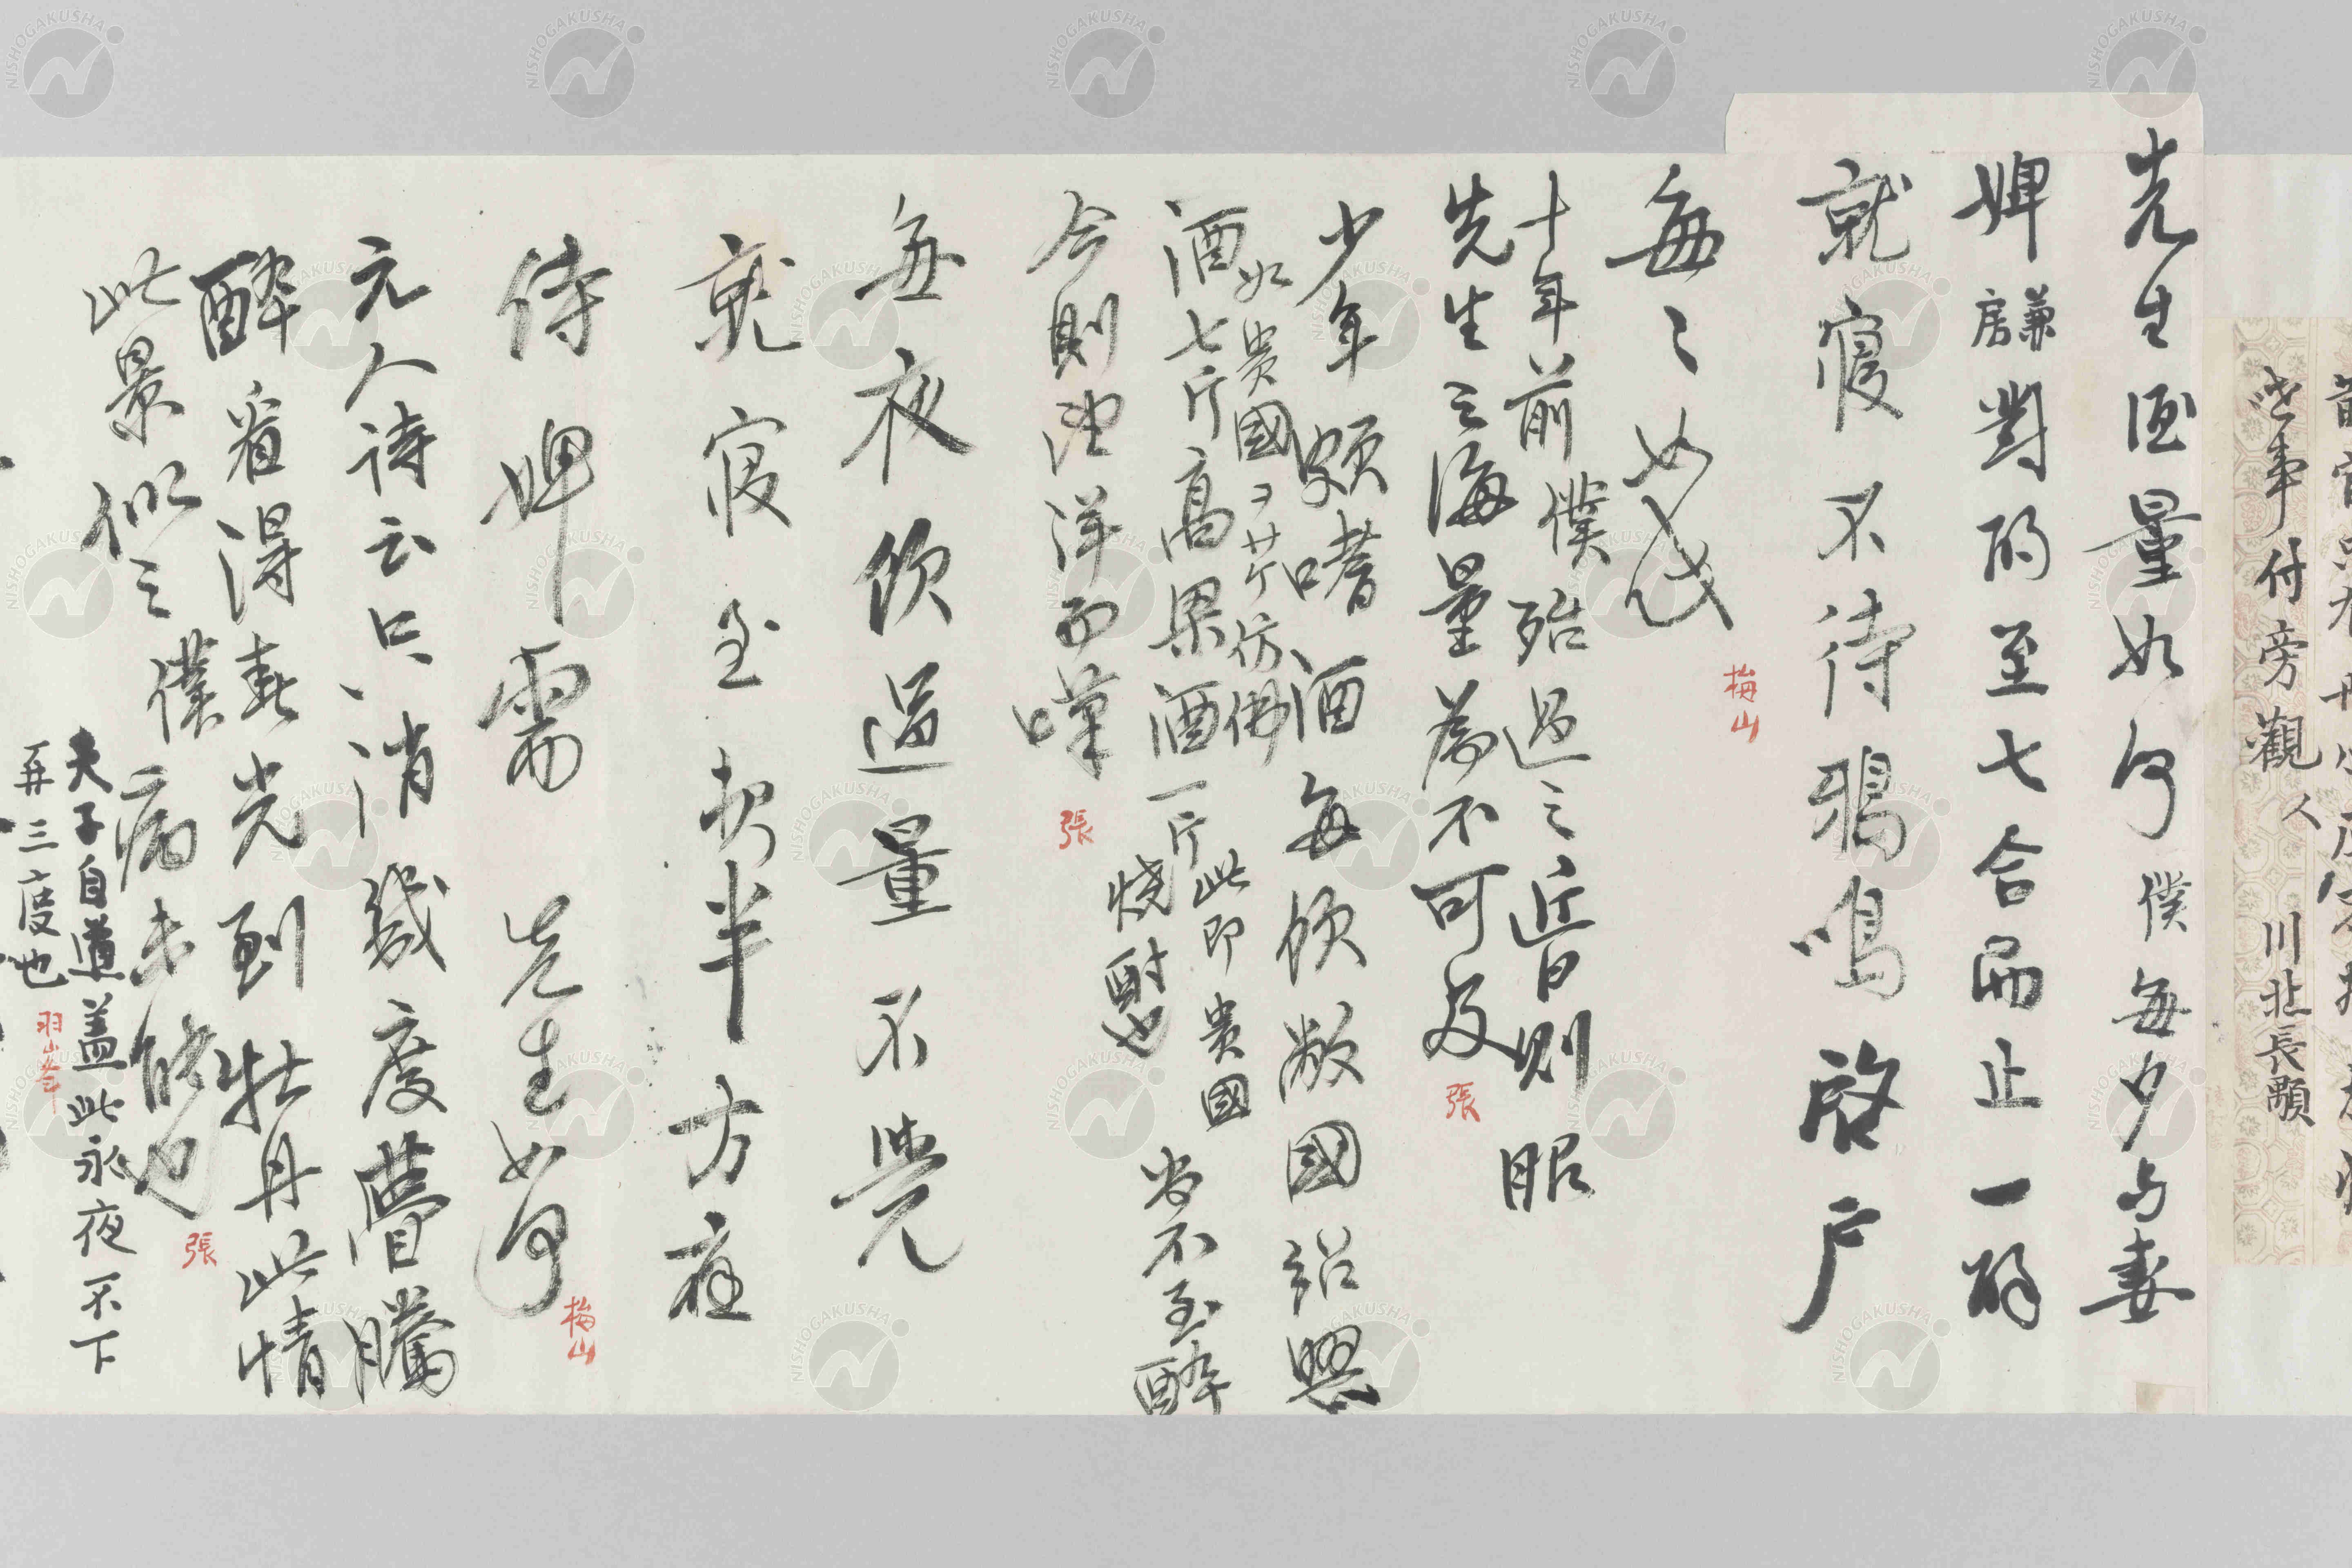 此事付旁觀人 川北長顒
先生酒量如何 僕每夕与妻
婢兼房對酌至七合而止一酔
就寝不待鴉鳴啓戸
每々如此
梅山
十年前僕殆過之近日則昭
先生之海量為不可及
張
少年頗嗜酒每飲敝國紹興
如貴國ヲ廿斤仿佛
酒七斤高粱酒一斤此即貴國燒酎也 尚不至醉
今則望洋而嘆
張
每夜飲過量不覺
就寝至夢半方痊
侍婢需 先生如何
梅山
元人詩云只消幾度瞢騰
醉看得春光到牡丹此情
此景似之僕病未能也
張
夫子自道盖此永夜不下
再三度也
羽峯